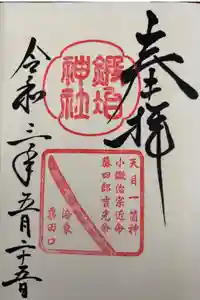 奉拝
鍛冶
神社
天目一箇神
小鍛治宗近命
藤四郎吉光命
洛東
粟田口
令和三年五月二十五日